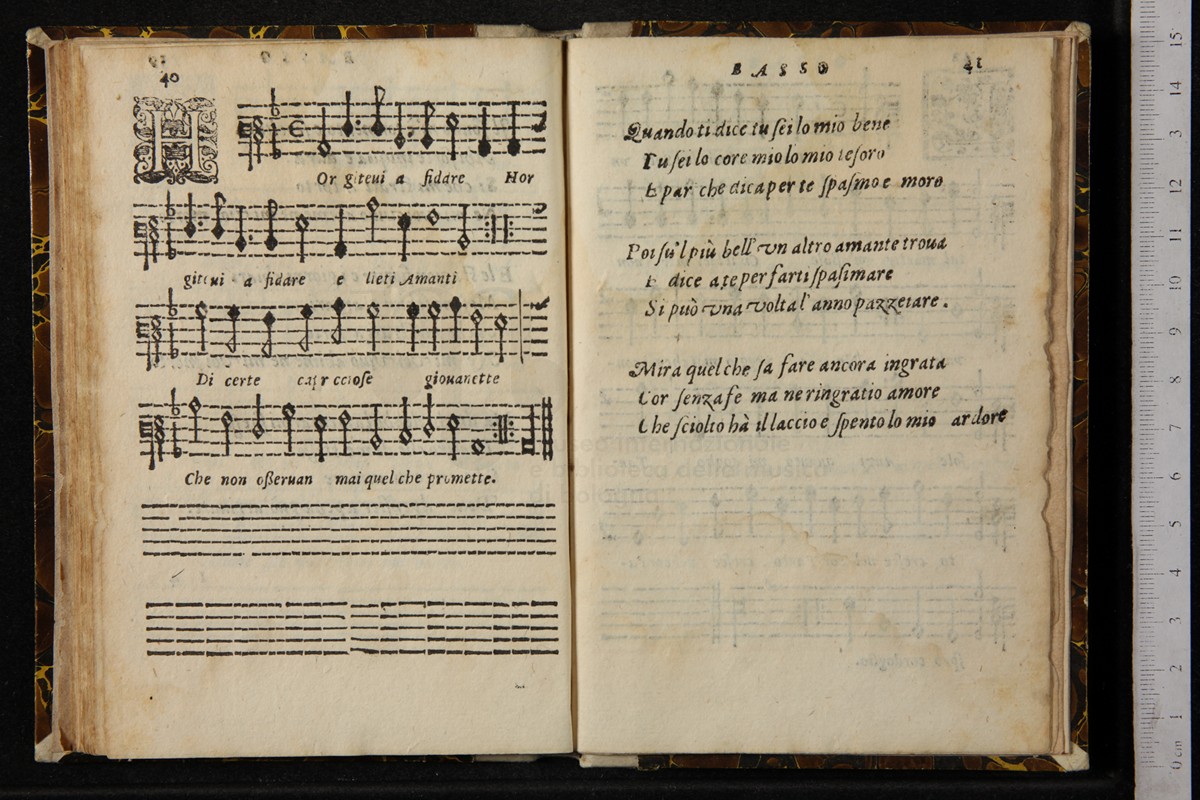 40
H
Or giteui a fidare Hor
giteui a fidare e lieti Amanti
Di certe giouanette
Che non osseruan mai quel che promette.
BASSO
41
Quando ti dice tu sei lo mio bene
Tu sei lo core mio lo mio tesoro
E par che dica per te spasmo e moro
Poi su'l più bell' vn altro amante troua
E dice a te per farti spasimare
Si può vna volta l'anno pazzeiare.
Mira quel che sa fare ancora ingrata
Cor senza fe ma ne ringratio amore
Che sciolto hà il laccio e spento lo mio ardore
museo internazionale
e biblioteca della musica
di bologna
0 cm 1 2 3 4 5 6 7 8 9 10 11 12 13 14 15